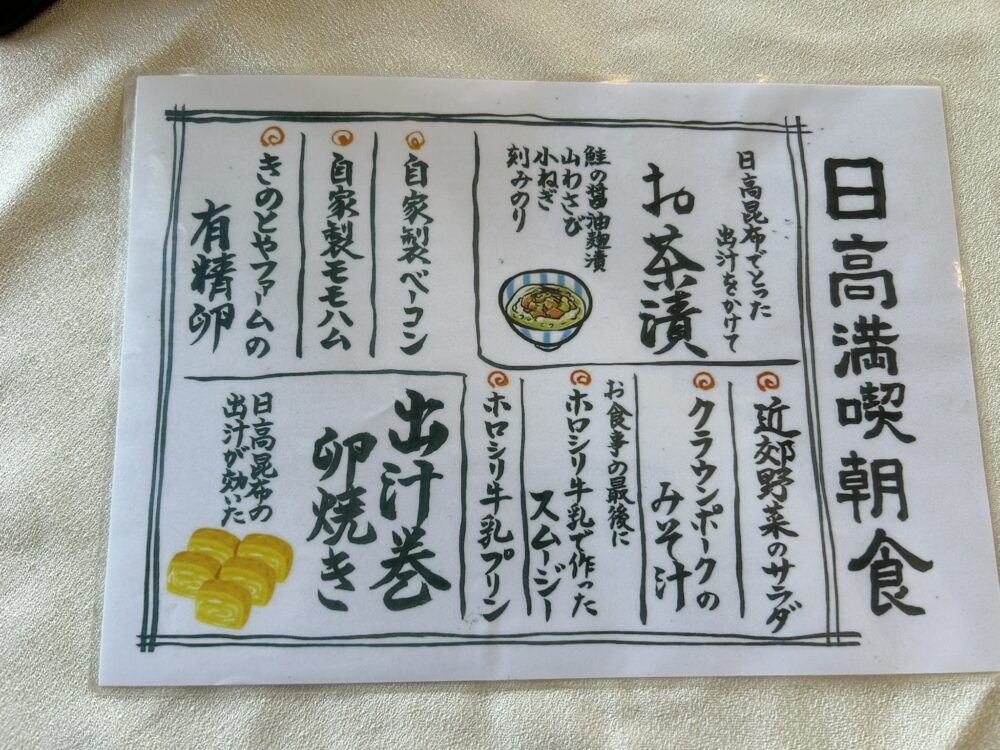 日高満喫朝食
日高昆布でとった
出汁をかけて
お茶漬
鮭の醤油麹漬
山わさび
小ねぎ
刻みのり
自家製ベーコン
自家製モモハム
きのとやファームの
有精卵
近郊野菜のサラダ
クラウンポークの
みそ汁
お食事の最後に
ホロシリ牛乳で作った
スムージー
ホロシリ牛乳プリン
出汁巻
卵焼き
日高昆布の
出汁が効いた